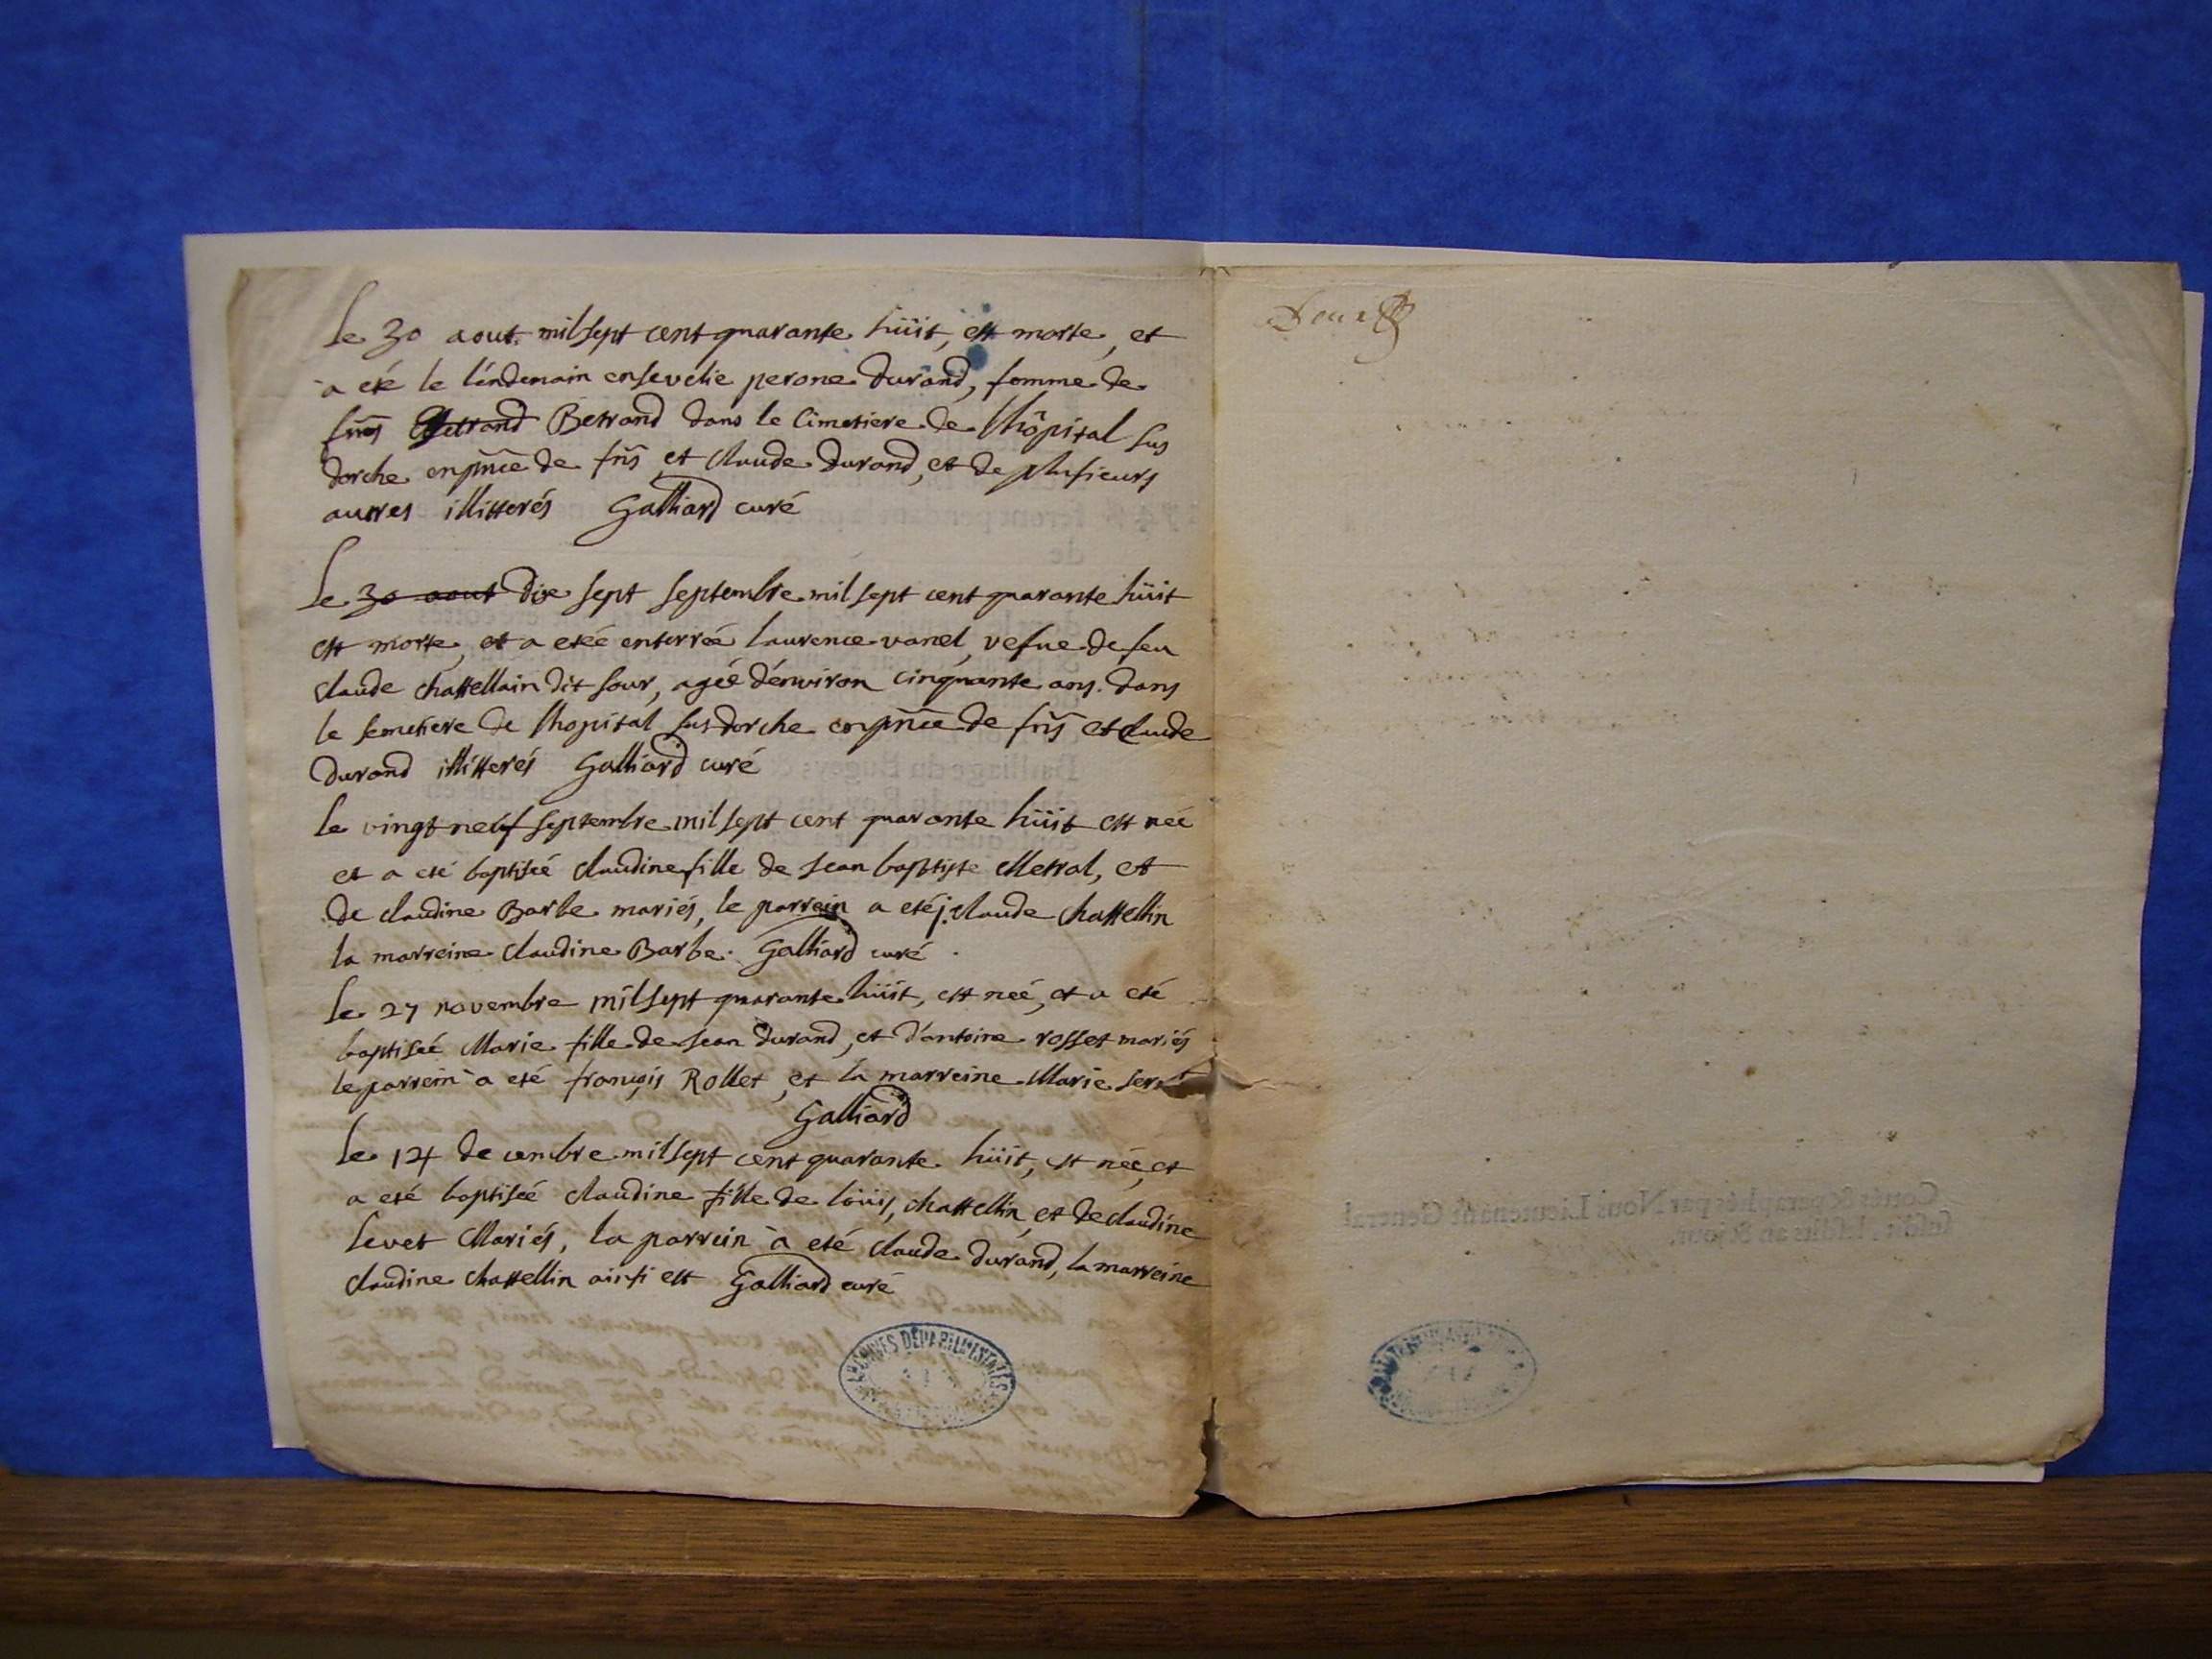 Le 30 aout mil sept cent quarante hüit, est morte, et
a eté le léndemain ensevélie perone durand, femme de
frñs Betrand Betrand dans le Cimetiere de lhôpital sus
dorche enpñce de frñs et claude durand, et de plusieurs
autres illitterés Galliard curé
Le 30 aout dix sept septembre mil sept cent quarante hüit
est morte, et a etée enterreé laurence vanel, vefue de feu
claude chastellain dit sour, ageé dénviron cinquante ans. dans
le semetiere de lhopital sus dorche enpñce de frñs et claude
durand illitterés Galliard curé
le vingt neuf septembre mil sept cent quarante hüit est neé
et a eté baptiseé claudine fille de Jean baptiste Metral, et
de claudine Barbe mariés, le parrein a eté j. claude chastellin
la marreine claudine Barbe. Galliard curé.
Le 27 novembre mil sept quarante hüit, est neé, et a eté
baptiseé Marie fille de Jean durand, et d'antoine rosset mariés
le parrein a eté françois Rollet, et la marreine Marie
Galliard
Le 14 decembre mil sept cent quarante hüit, est neé, et
a eté baptiseé claudine fille de loüis, chastellin, et de claudine
levet Mariés, la parrein à eté claude durand, la marreine
claudine chastellin ainsi est Galliard curé
ARCHIVES DÉPARTEMENTALES
Cottés & paraphés par Nous Lieutenant General
susdit, lesdits an & jour.